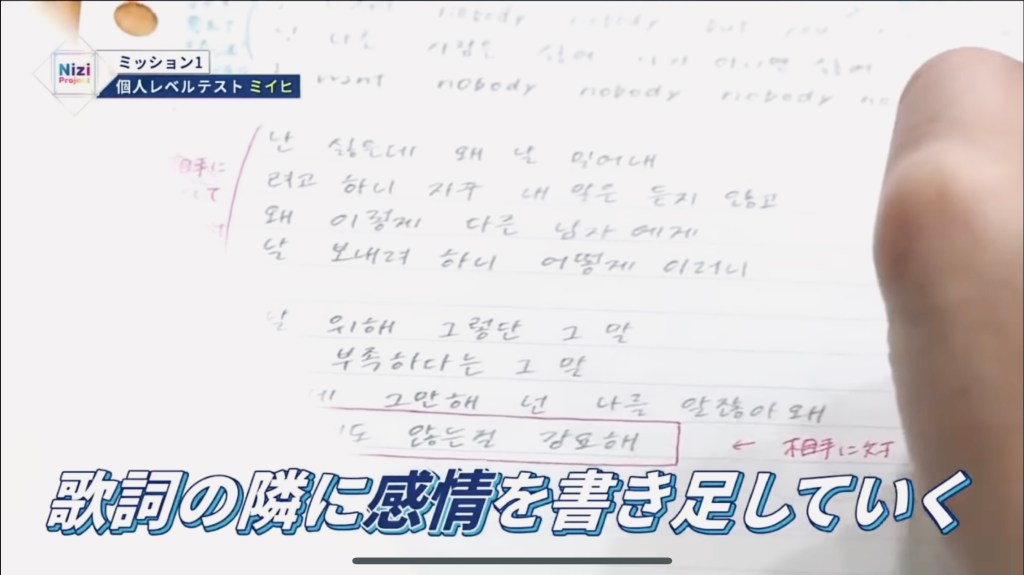 nobody nobody but you
난 다른 사람은 싫어 니가 아니면 싫어
I want nobody nobody nobody no
Nizi
Project
ミッション1
個人レベルテスト ミイヒ
相手に
난 싫은데 왜 날 밀어내
려고 하니 자꾸 내 말은 듣지 않고
왜 이렇게 다른 남자에게
날 보내려 하니 어떻게 이러니
날 위해 그렇단 그 말
부족하다는 그 말
그만해 넌 나를 알잖아 왜
도 않는걸 강요해 ← 相手に対
歌詞の隣に感情を書き足していく